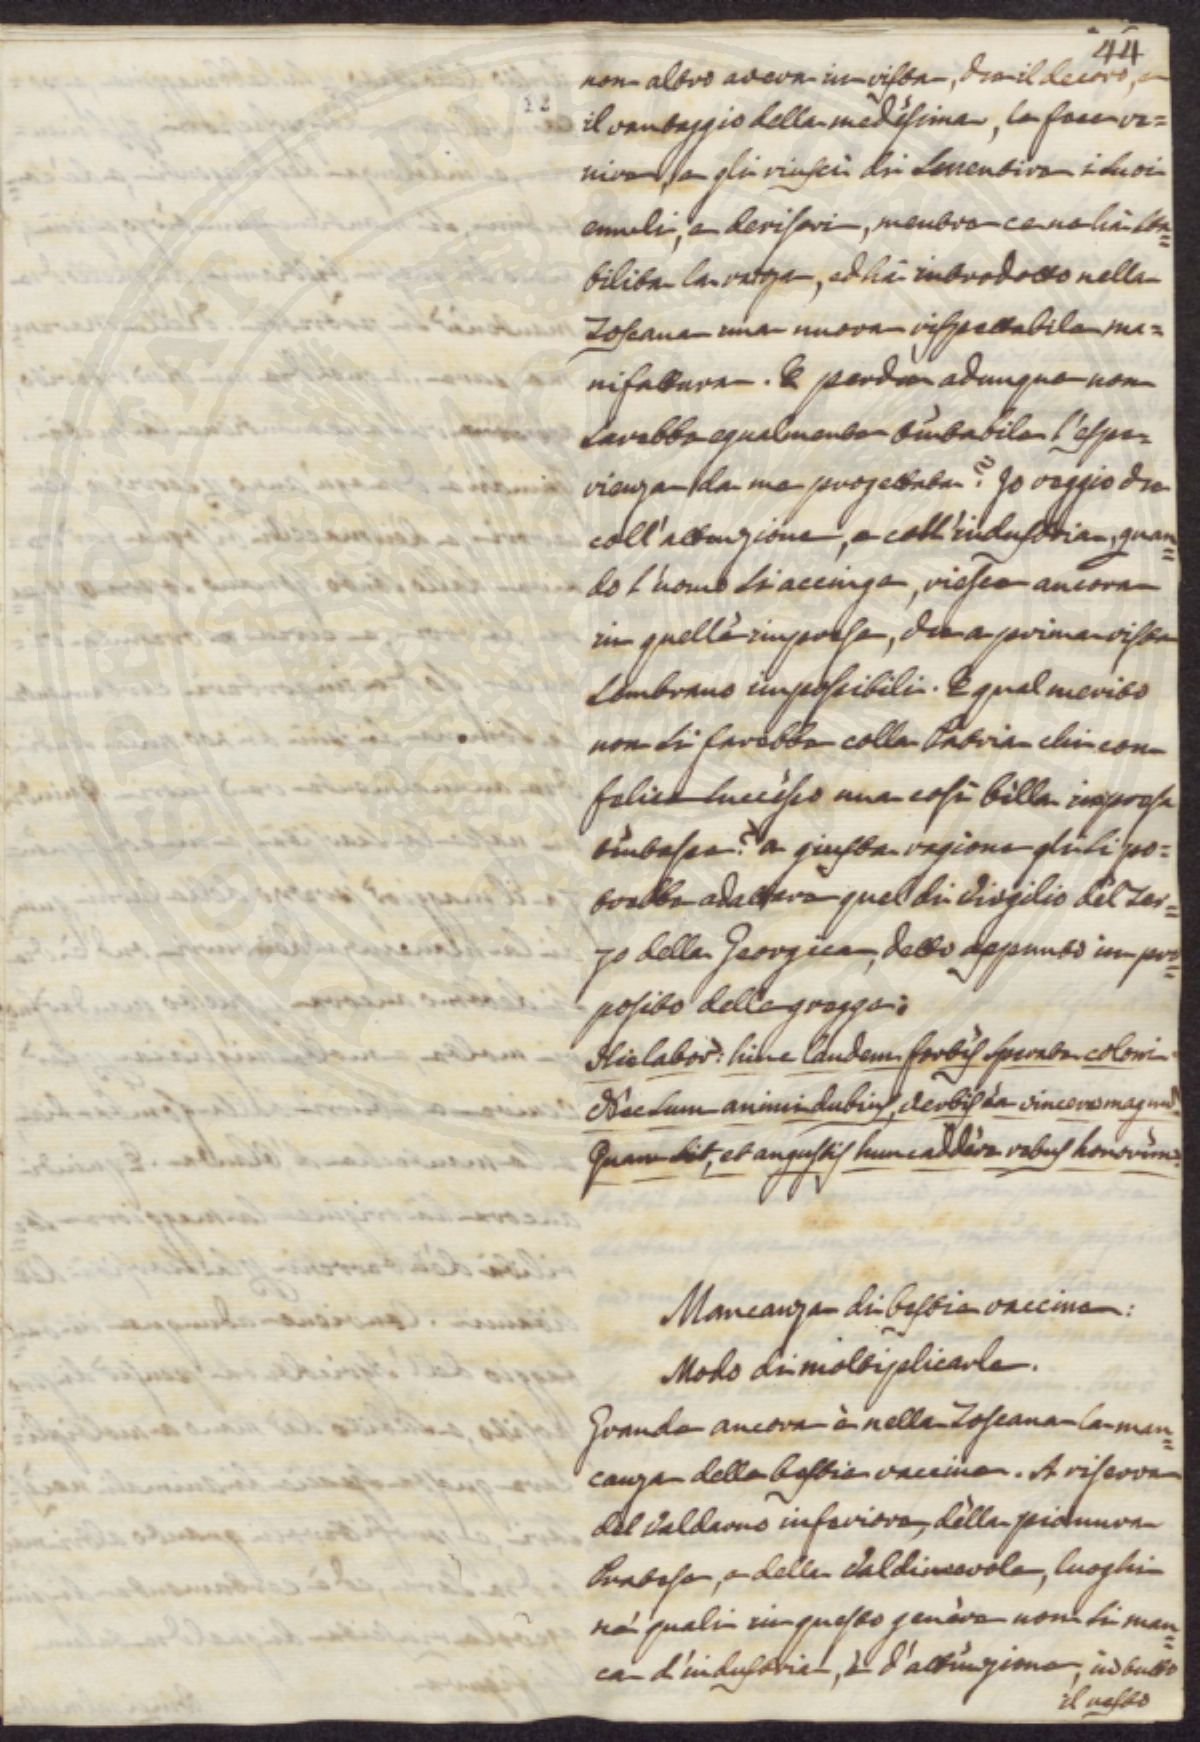 44
non altro aveva in vista, che il decoro, e
il vantaggio della medesima, lo fece ve=
nire, e gli riuscì di smentire i suoi
emuli, e derisori, mentre ce ne hà sta=
bilita la razza, ed hà introdotto nella
Toscana una nuova rispettabile ma=
nifattura. E perche adunque non
sarebbe egualmente tentabile l'espe=
rienza da me progettata? Io veggio che
coll'attenzione, e coll'industria, quan=
do l'uomo si accinge, riesce ancora
in quelle imprese, che a prima vista
sembrano impossibili. E qual merito
non si farebbe colla Patria chi con
felice successo una così bella impresa
tentasse? a giusta ragione gli si po=
trebbe adattare quel di Virgilio del Ter=
zo della Georgica, detto appunto in pro=
posito delle gregge:
Hic labor: hinc laudem fortes sperate coloni
Nec sum animi dubius, verbis ea vincere magnum
Quam sit, et angustis hunc addere rebus honorem.
Mancanza di bestie vaccine:
Modo di moltiplicarle.
Grande ancora è nella Toscana la man=
canza delle bestie vaccine. A riserva
del Valdarno inferiore, della pianura
Pratese, e della Valdinievole, luoghi
né quali in questo genere non si man=
ca d'industria, e d'attenzione, in tutto
il resto